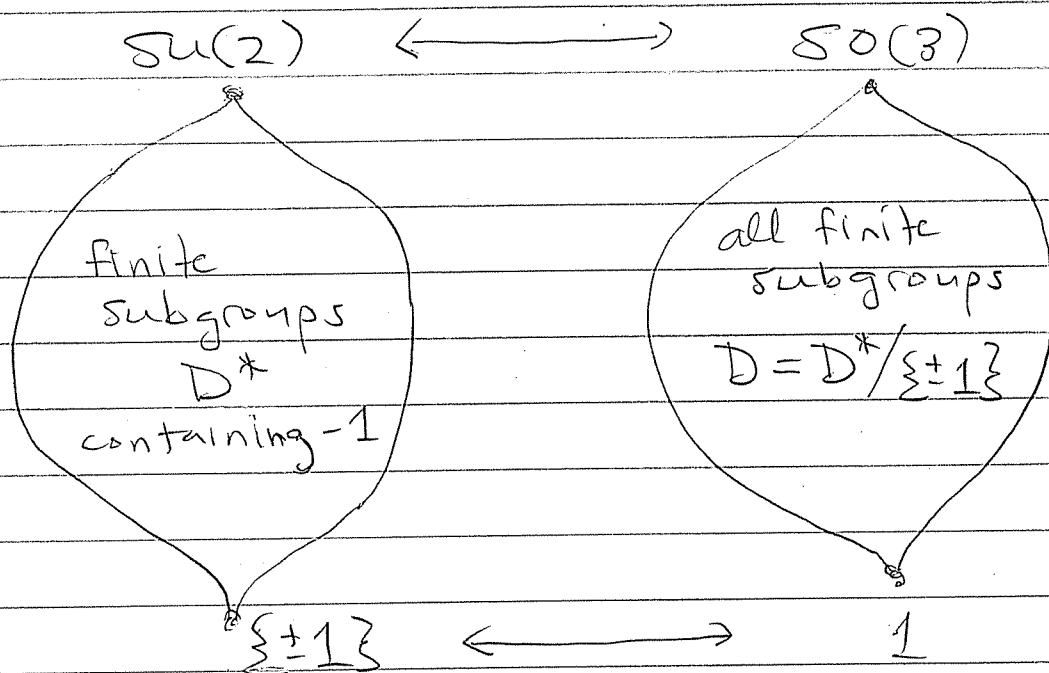 SU(2) ⟷ SO(3)
finite
subgroups
D*
containing -1
all finite
subgroups
D = D*/{±1}
{±1} ⟷ 1